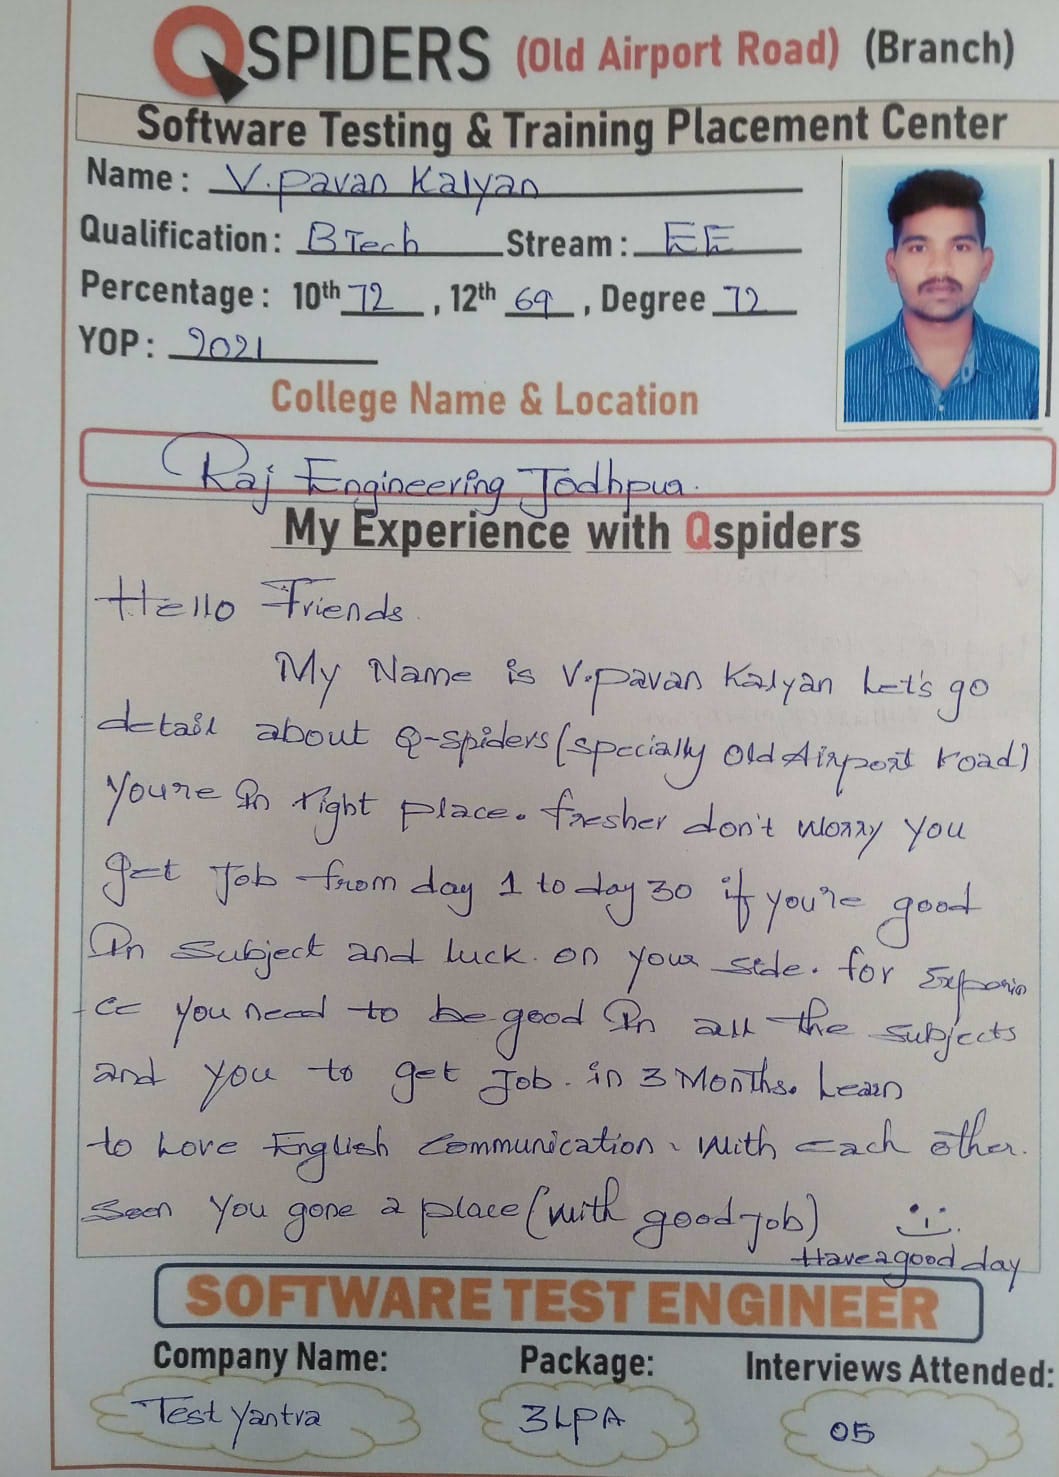 QSPIDERS (Old Airport Road) (Branch)
Software Testing & Training Placement Center
Name: V.pavan Kalyan
Qualification: BTech Stream: EE
Percentage: 10th 72, 12th 69, Degree 72
YOP: 2021
College Name & Location
Raj Engineering Jodhpur.
My Experience with Qspiders
Hello Friends.
My Name is V.pavan Kalyan Let's go
detail about Q-spiders (specially Old Airport road)
You're in right place. fresher don't worry you
get Job from day 1 to day 30 if you're good
In subject and luck. on your side. for Experin
ce you need to be good In all the subjects
and you to get Job. in 3 Months. Learn
to Love English Communication. With each other.
Seen You gone a place (with good Job)
Have a good day
SOFTWARE TEST ENGINEER
Company Name: Package: Interviews Attended:
Test Yantra 3LPA 05